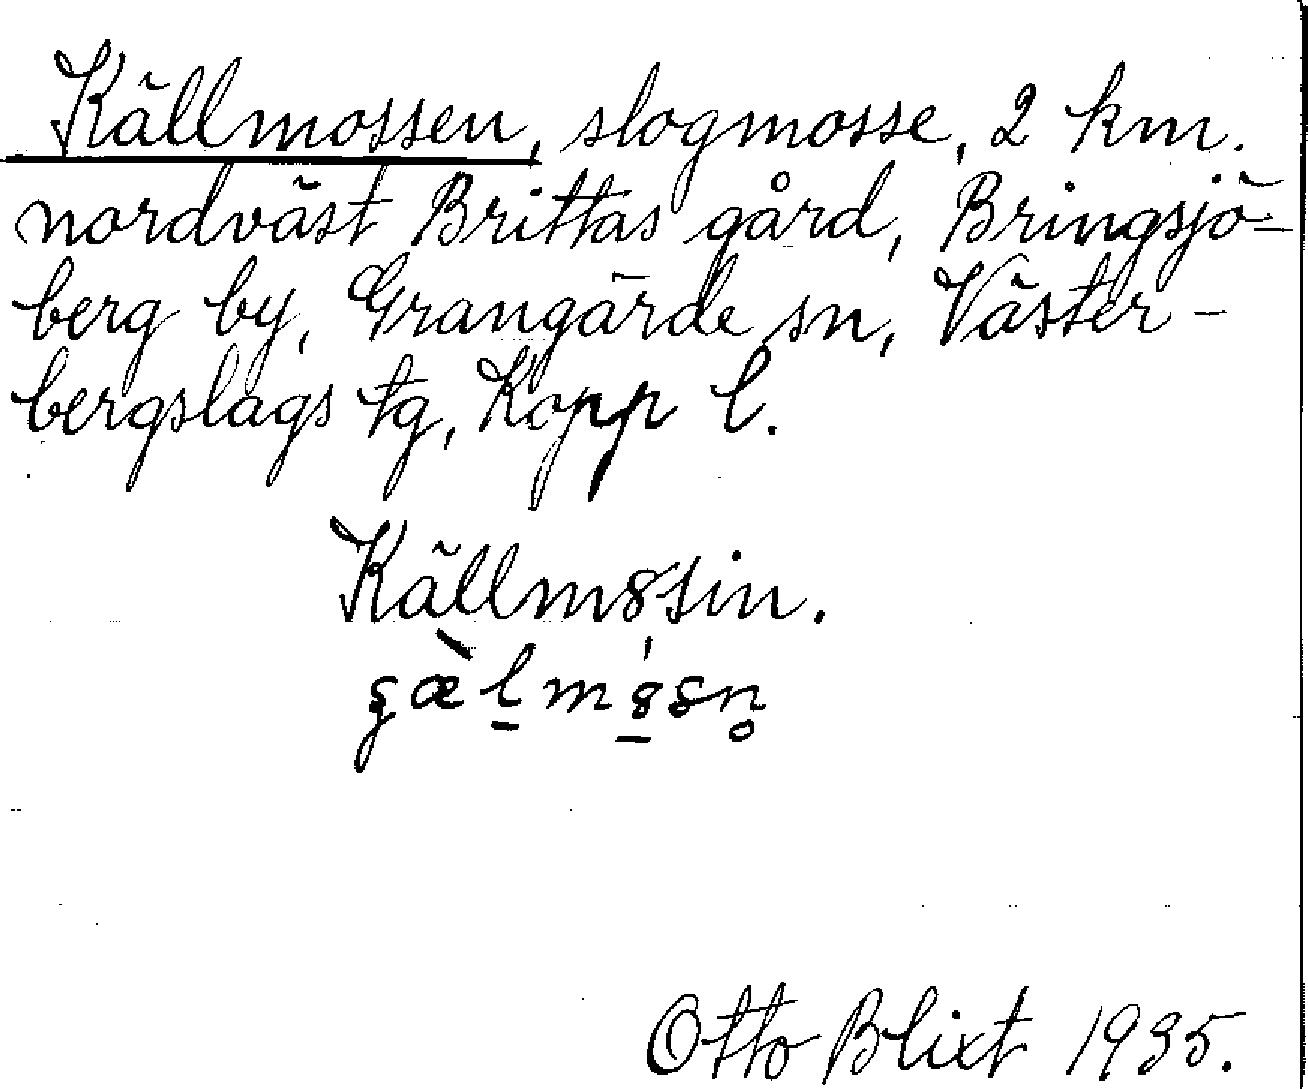 Källmossen, slogmosse, 2 km.
nordväst Brittas gård, Bringsjö-
berg by, Grangärde sn, Väster-
bergslags tg, Kopp l.
Källm8sin.
Otto Blixt 1935.